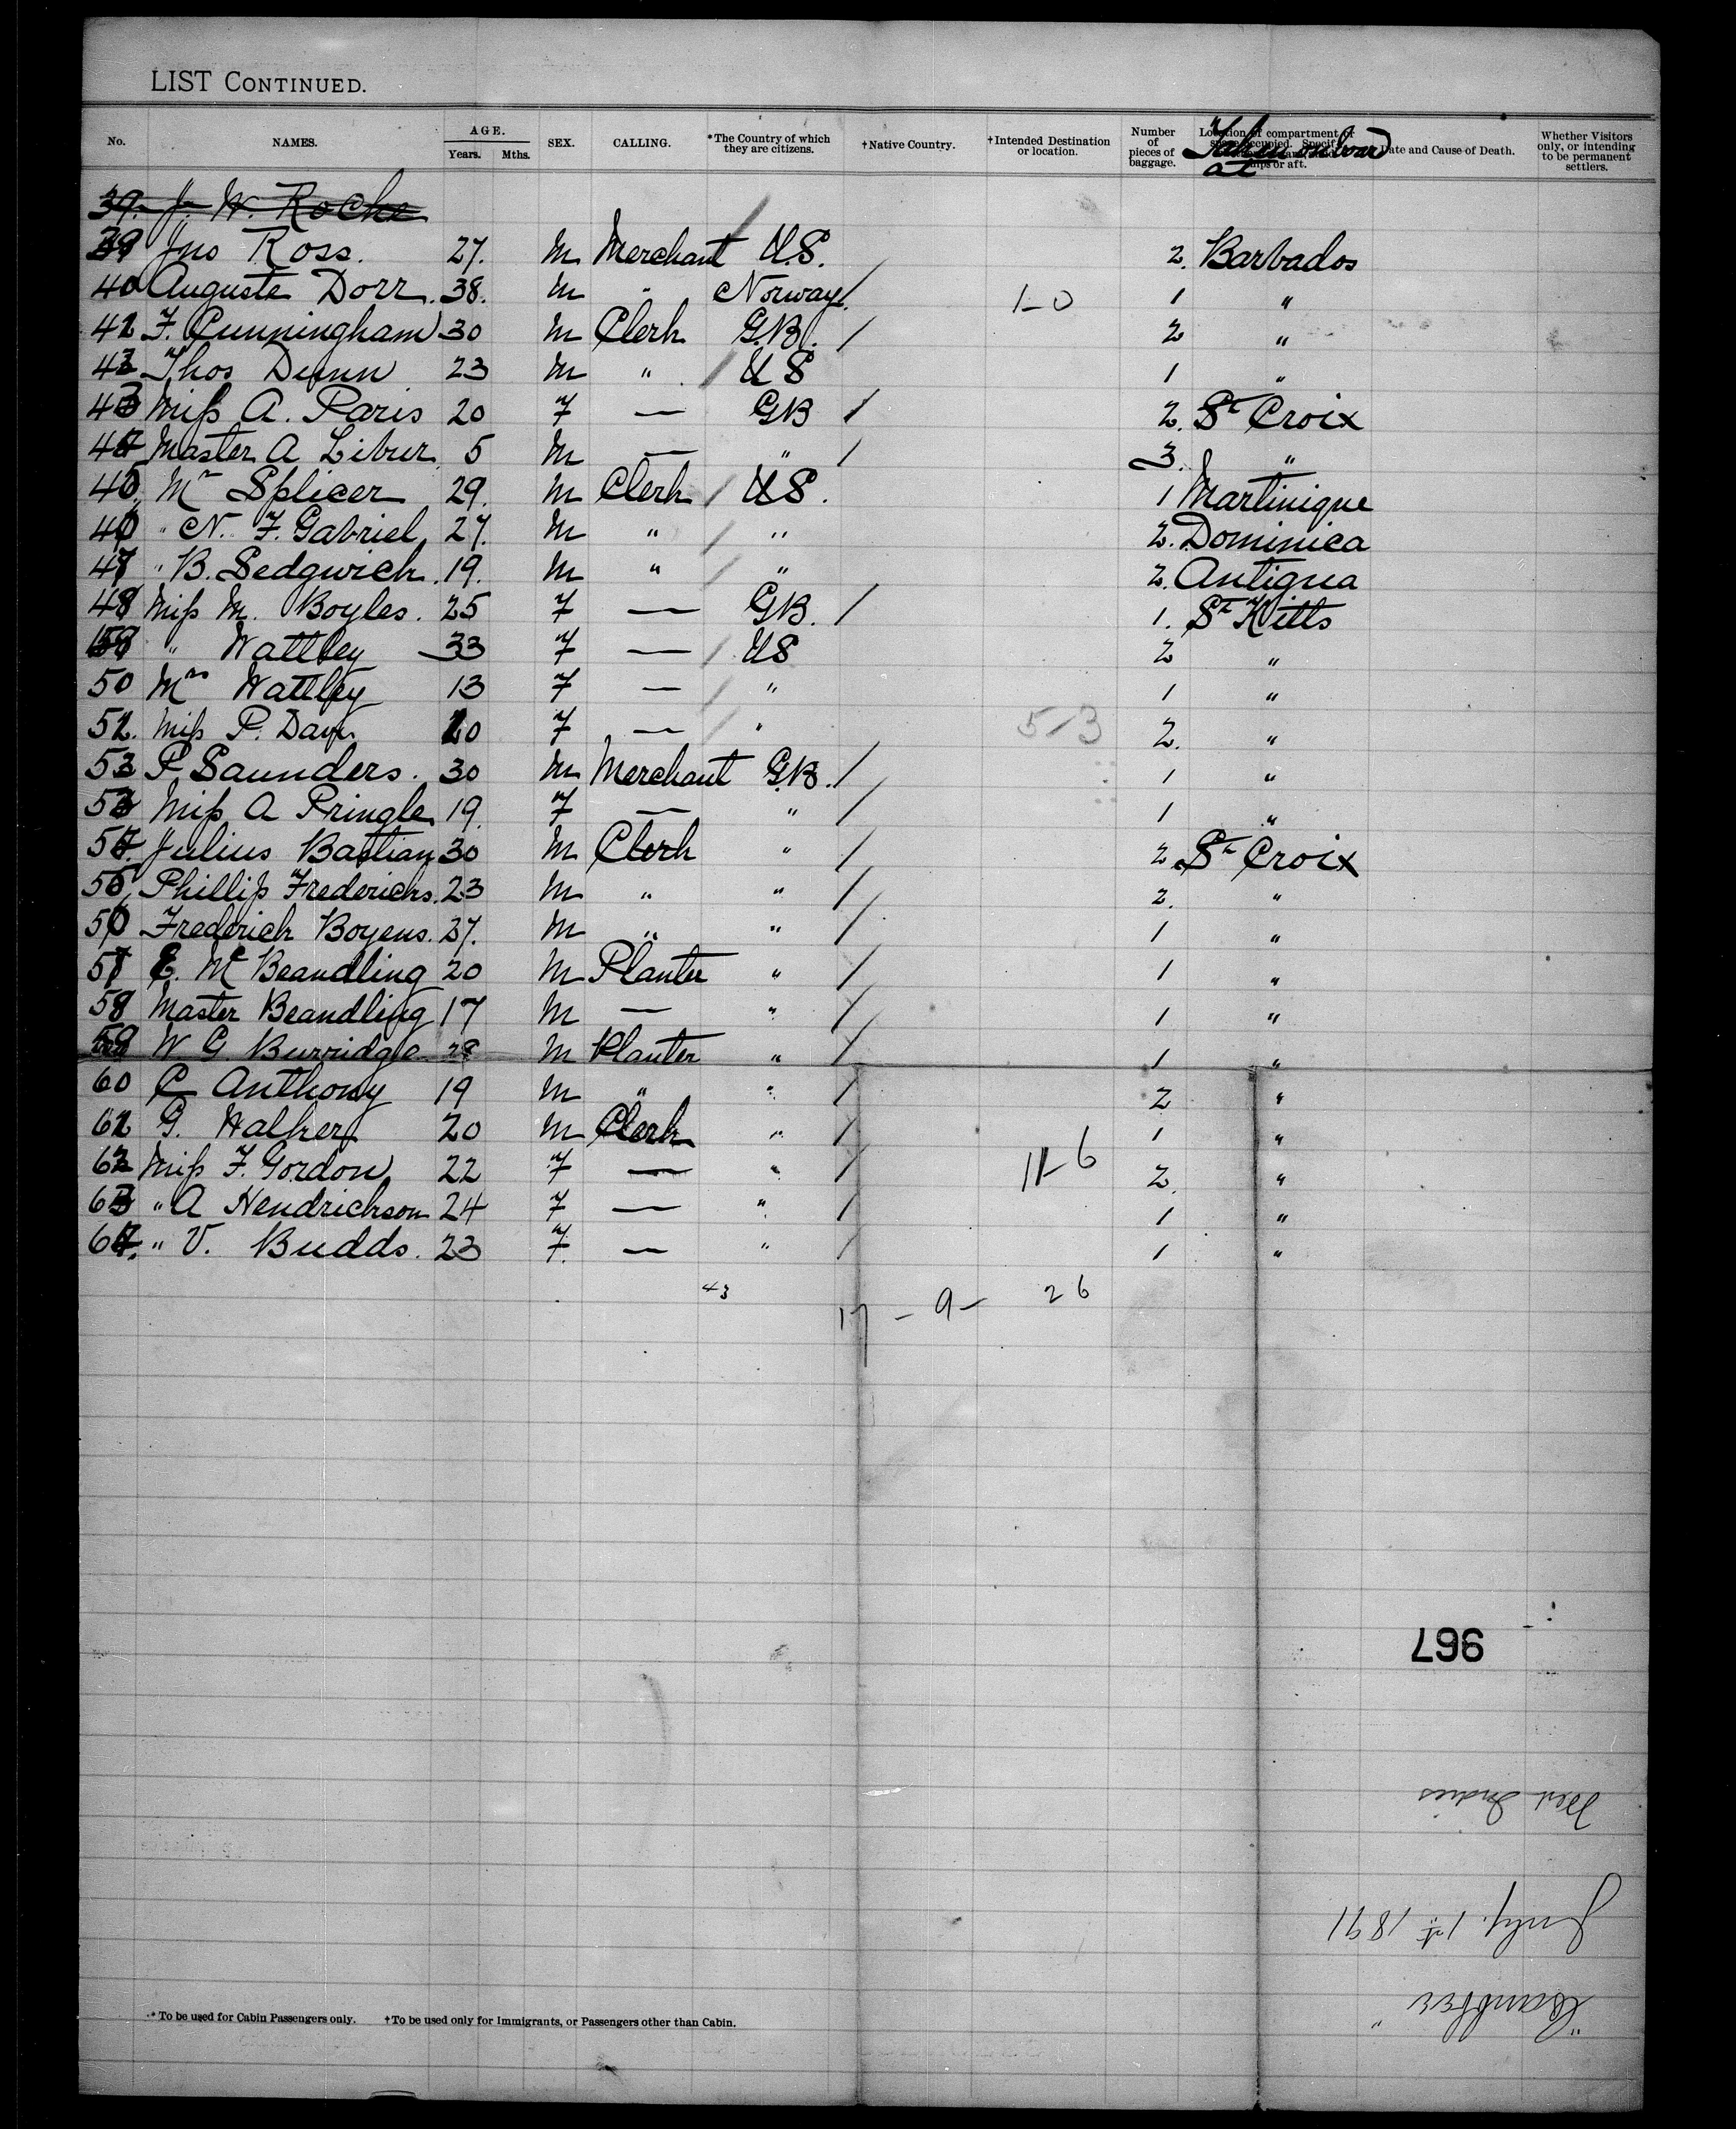 LIST CONTINUED.
No. NAMES. AGE. Years. Mths. SEX. CALLING. *The Country of which they are citizens. †Native Country. †Intended Destination or location. Number of pieces of baggage. Location of compartment or space occupied. Taken on board at Date and Cause of Death. Whether Visitors only, or intending to be permanent settlers.
39. J. W. Roche
39 Jno Ross. 27. M Merchant U.S. / 2. Barbados
40 Auguste Dorr. 38. M " Norway / 1-0 1 "
41 F. Cunningham 30 M Clerk G.B. / 2 "
42 Thos Dunn 23 M " / US 1 "
43 Miss A. Paris 20 F — GB / 2. St Croix
44 Master A Libur 5 M — " / 3. "
45 Mr Splicer 29. M Clerk / US. 1 Martinique
46 " N. F. Gabriel 27. M " / " 2. Dominica
47 " B. Sedgwick. 19. M " / " 2. Antigua
48 Miss M. Boyles. 25 F — GB. / 1. St Kitts
49 " Wattley 33 F — / US 2 "
50 Mrs Wattley 13 F — / " 1 "
51. Miss P. 20 F — / " 5/3 2. "
52 P. Saunders. 30 M Merchant G.B. / 1 "
53 Miss A Pringle 19. F — " / 1 "
54. Julius Bastian 30 M Clerk " / 2 St Croix
55 Phillip Frederichs. 23 M " " / 2. "
56 Frederich Boyens. 27. M " " / 1 "
57 E. Mc Beandling 20 M Planter " / 1 "
58 Master Beandling 17 M — " / 1 "
59 W G Burridge 28 M Planter " / 1 "
60 C Anthony 19 M " " / 2 "
61 G. Walker 20 M Clerk " / 1 "
62 Miss F. Gordon 22 F — " / 11-6 2. "
63 " A Hendrickson 24 F — " / 1 "
64. " V. Budds. 23 F. — " / 1 "
43
17 - 9 - 26
967
West Indies
July. 1st 1891
* To be used for Cabin Passengers only. †To be used only for Immigrants, or Passengers other than Cabin.